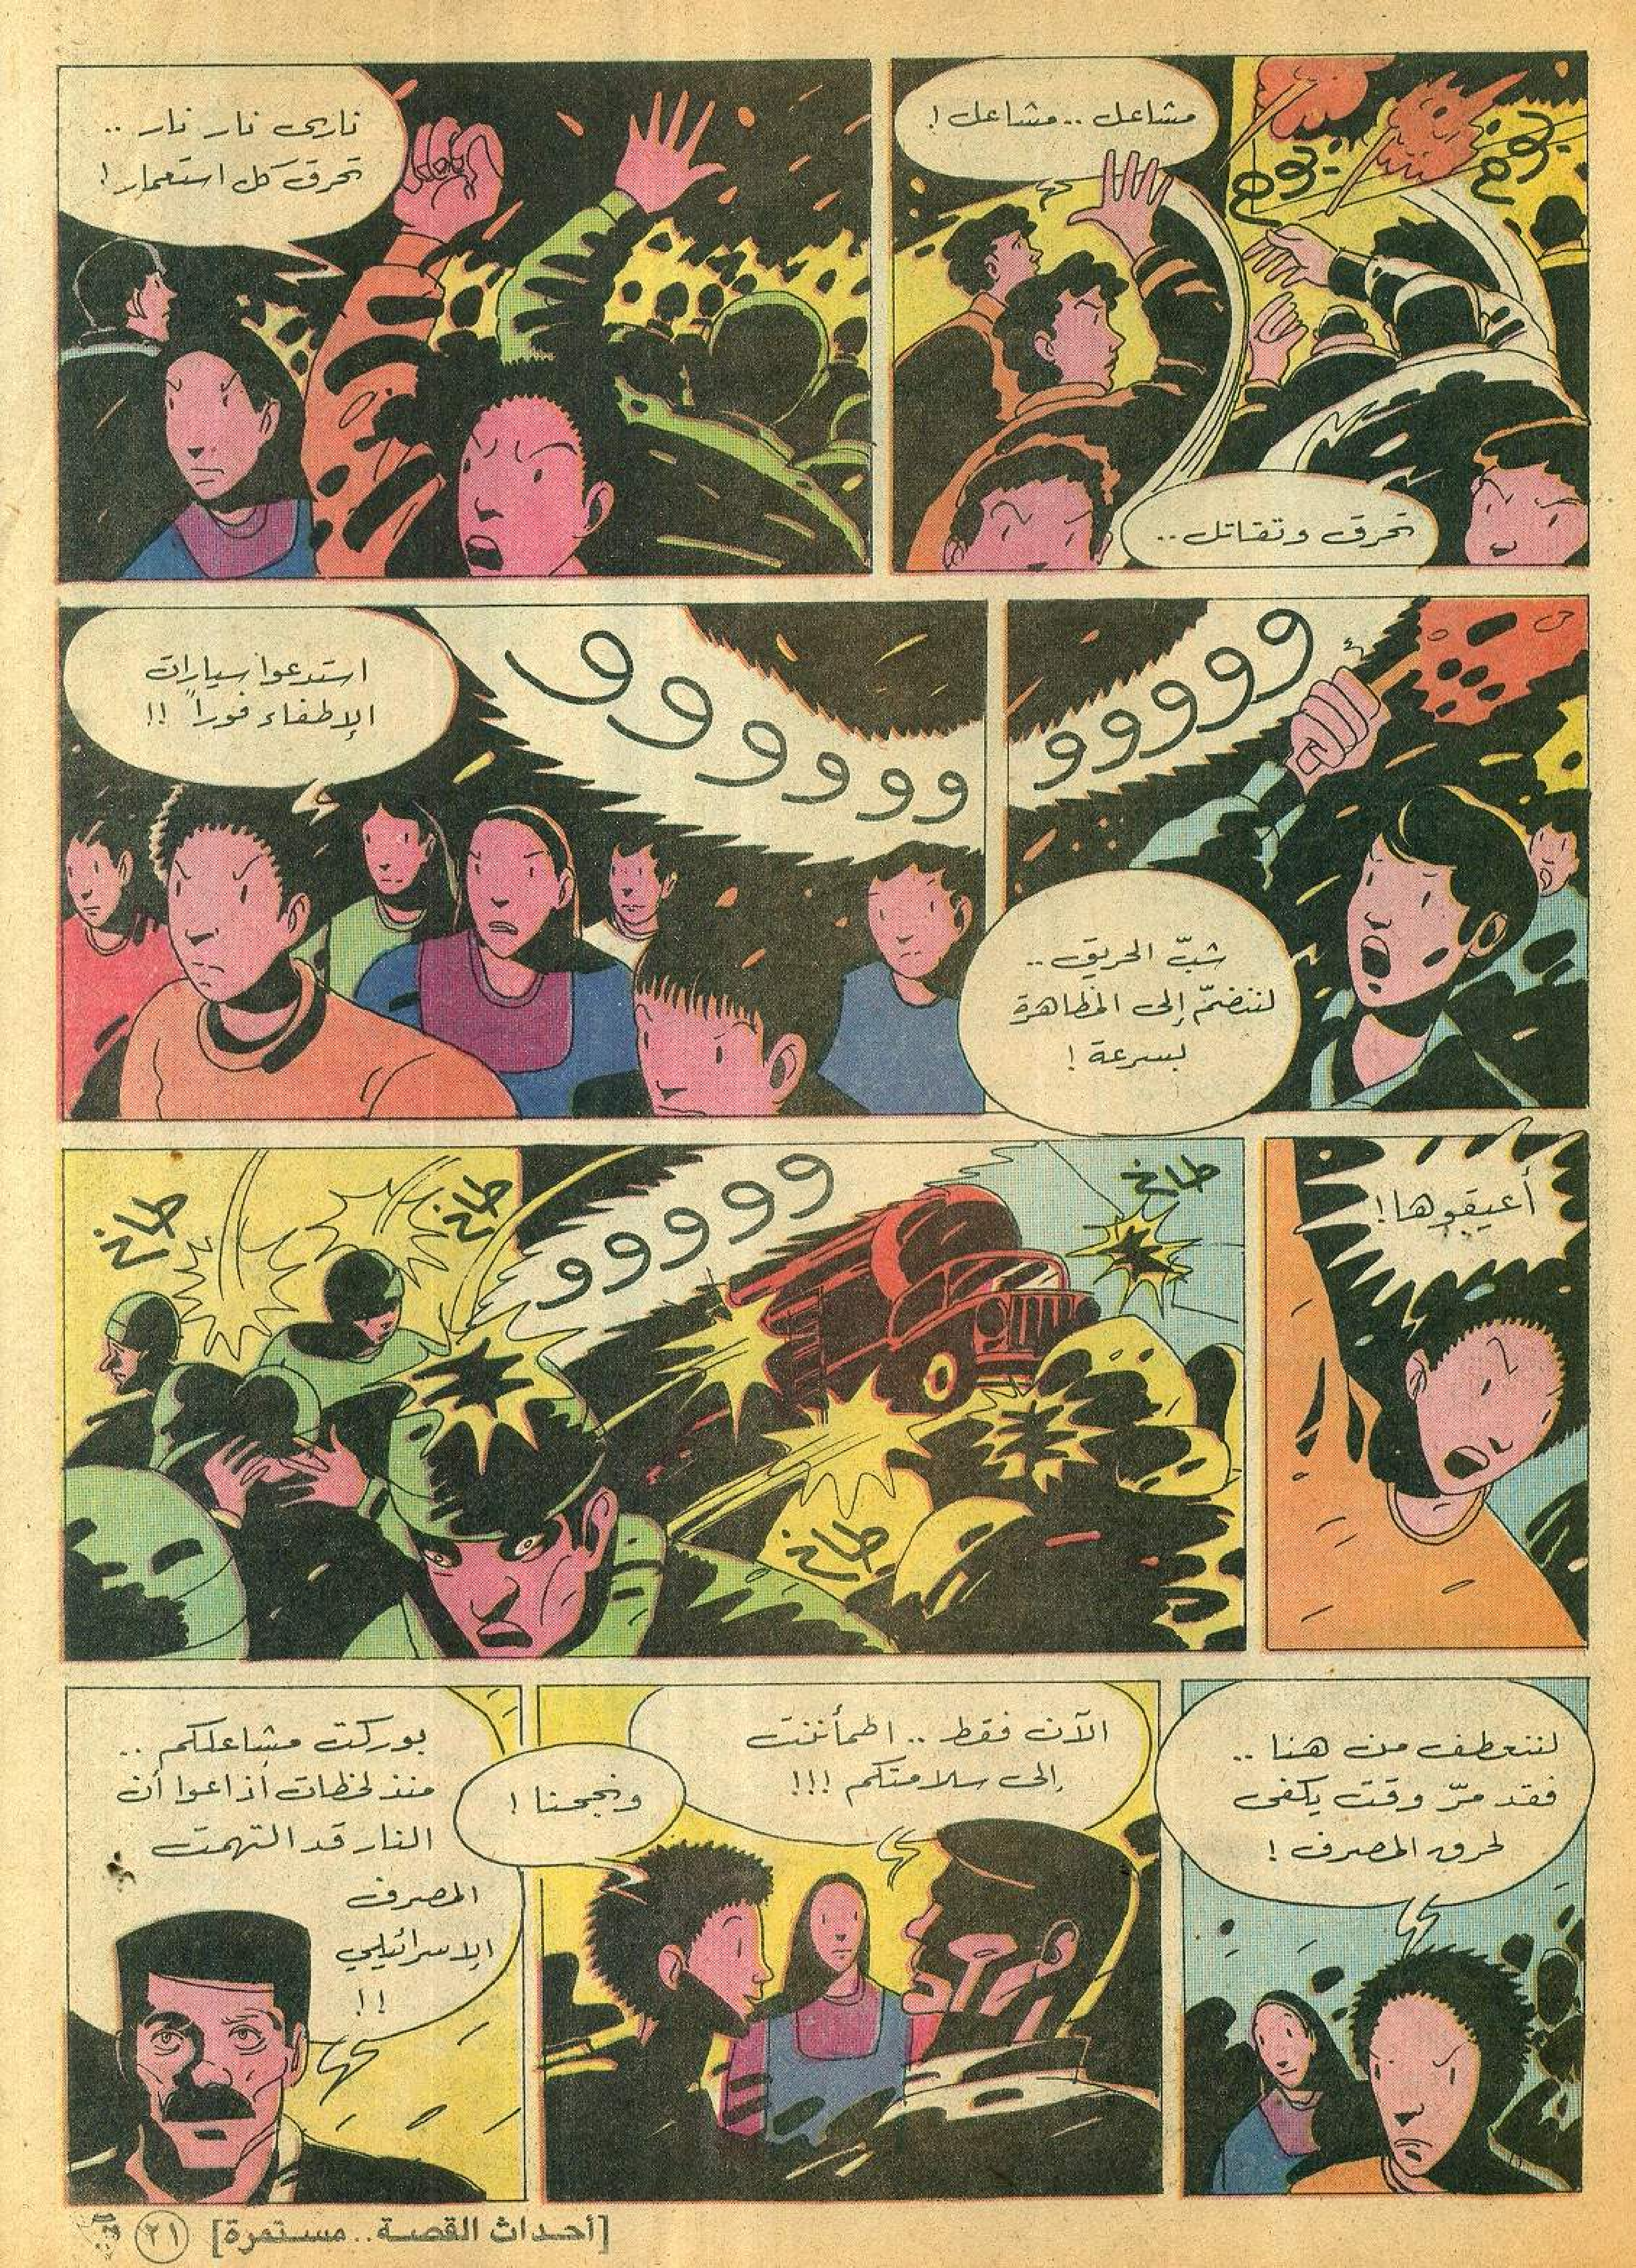 مشاعل .. مشاعل !
بوم
بوم
تحرق وتقاتل ..
ناري نار نار ..
تحرق كل استعمار !
ووووو
شبّ الحريق ..
لننضمّ إلى المظاهرة
بسرعة !
وووووووو
استدعوا سيارات
الإطفاء فوراً !!
أعيقوها !
طاخ
ووووو
طاخ
طاخ
طاخ
لننعطف من هنا ..
فقد مرّ وقت يكفي
لحرق المصرف !
الآن فقط .. اطمأننت
إلى سلامتكم !!!
ونجحنا !
بوركت مشاعلكم ..
منذ لحظات أذاعوا أن
النار قد التهمت
المصرف
الإسرائيلي
!!
[أحداث القصة .. مستمرة]
٢١